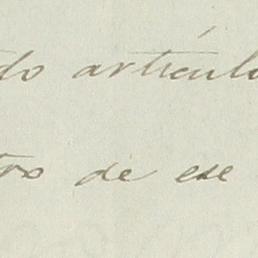 do artículo
tros de ese